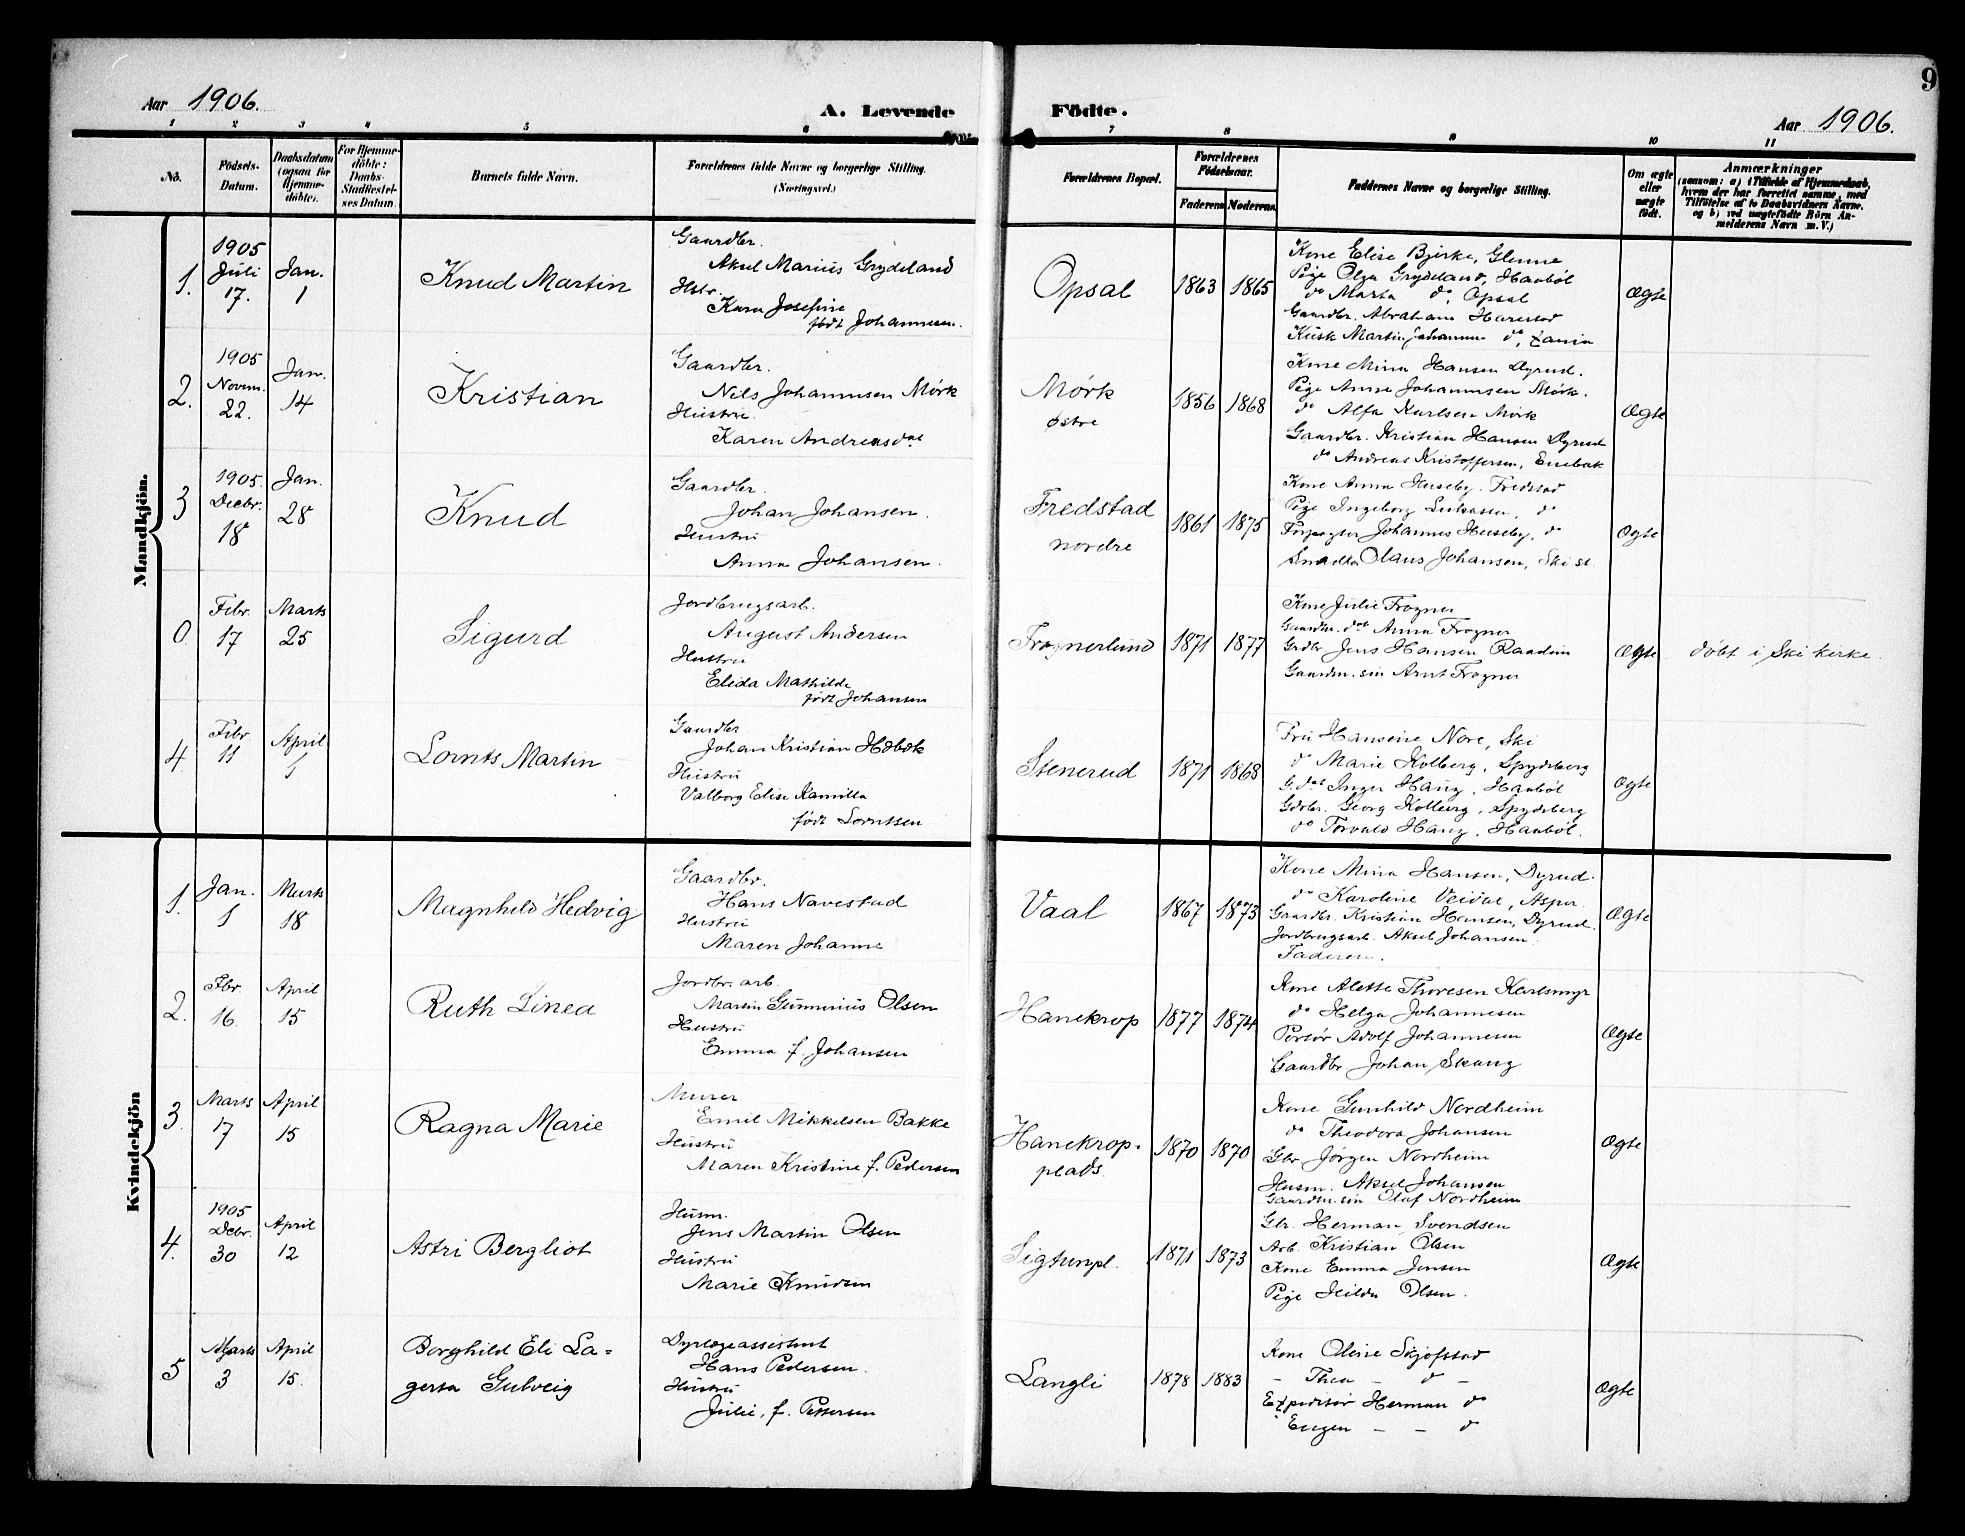 9
Aar 1906.
A. Levende Födte.
Aar 1906.
1 2 3 4 5 6 7 8 9 10 11
No.
Födsels-
Datum.
Daabsdatum
(ogsaa for
Hjemme-
döbte).
For Hjemme-
döbte:
Daabs-
Stadfæstel-
ses Datum.
Barnets fulde Navn.
Forældrenes fulde Navne og borgerlige Stilling.
(Næringsvei.)
Forældrenes Bopæl.
Forældrenes
Födselsaar.
Faderens Moderens
Faddernes Navne og borgerlige Stilling.
Om ægte
eller
uægte
födt.
Anmærkninger
(saasom: a) i Tilfælde af Hjemmedaab,
hvem der har forrettet samme, med
Tilföielse af to Daabsvidners Navne.
og b) ved uægtefödte Börn An-
melderens Navn m. V.)
Mandkjön.
1. 1905 Juli 17. Jan. 1 Knud Martin
Gaardbr.
Aksel Marius Grydeland
Hstr.
Kara Josefine
født Johannesen.
Opsal 1863 1865
Kone Elise Bjerke, Glenne
Pige Olga Grydeland, Haabøl
do Marta do, Opsal
Gaardbr. Abraham Harestad
Kusk Martin Johannes do,
Ægte
2. 1905 Novem. 22. Jan. 14 Kristian
Gaardbr.
Nils Johannesen Mørk
Hustru
Karen Andreasdat
Mørk
østre
1856 1868
Kone Mina Hansen Dyrud.
Pige Anna Johannesen Mørk.
do Alfa Karlsen Mørk
Gaardbr. Kristian Hansen Dyrud
do Andreas Kristoffersen, Enebak
Ægte
3 1905. Decbr. 18 Jan. 28 Knud
Gaardbr.
Johan Johansen.
Hustru
Anna Johansen.
Fredstad
nordre
1861 1875
Kone Anna Huseby. Fredstad
Pige Ingeborg do
Forpagter Johannes Huseby, do
Olaus Johansen, Ski st.
Ægte
0 Febr. 17 Marts 25 Sigurd
Jordbrugsarb.
August Andersen
Hustru
Elida Mathilde
født Johansen
Frognerlund 1871 1877
Kone Julie Frogner
Gaardm. dat Anna Frogner
Grdbr. Jens Hansen Raadim
Gaardm. søn Arnt Frogner
Ægte døbt i Ski kirke.
4. Febr. 11 April 1 Lornts Martin
Gaardbr
Johan Kristian Hebæk
Hustru
Valborg Elise Kamilla
født Lorntsen
Stenerud 1871 1868
Fru Hansine Nore, Ski
do Marie Kolberg, Spydeberg
G.dat Inger Haug, Haabøl
Gdbr. Georg Kolberg, Spydeberg
do Torvald Haug, Haabøl.
Ægte
Kvindekjön
1. Jan. 1 Marts 18 Magnhild Hedvig
Gaardbr.
Hans Navestad
Hustru
Maren Johanne
Vaal 1867 1873
Kone Mina Hansen, Dyrud.
do Karoline Veidal, Asper.
Gaardbr. Kristian Hansen, Dyrud.
Jordbrugsarb. Aksel Johansen.
Faderen.
Ægte
2. Fbr. 16. April 15 Ruth Linea
Jordbr. arb.
Martin Gunnerius Olsen
Hustru
Emma f. Johansen
Hanekrop 1877 1874
Kone Alette Thoresen Karlsmyr
do Helga Johannesen
Portør Adolf Johannesen
Gaardbr Johan Skaug
Ægte
3. Marts 17 April 15 Ragna Marie
Murer
Emil Mikkelsen Bakke
Hustru
Maren Kristine f. Pedersen
Hanekrop-
plads.
1870 1870
Kone Gunhild Nordheim
do Theodora Johansen
Gbr Jørgen Nordheim
Husm. Aksel Johansen
Gaardm. søn Olaf Nordheim
Ægte
4. 1905 Decbr. 30 April 12 Astri Bergliot
Husm.
Jens Martin Olsen
Hustru
Marie Knudsen
Sigtunpl. 1871 1873
Gbr. Herman Svendsen
Arb. Kristian Olsen
Kone Emma Jensen
Pige Hilda Olsen.
Ægte
5 Marts 3 April 15. Borghild Eli La=
gerta Gulveig
Dyrlægeassistent
Hans Pedersen.
Hustru
Julie, f. Pettersen
Langli 1878 1883
Kone Oline Skjøfstad
– Thea – do –
Expeditør Herman do
Eugen – – do
Ægte